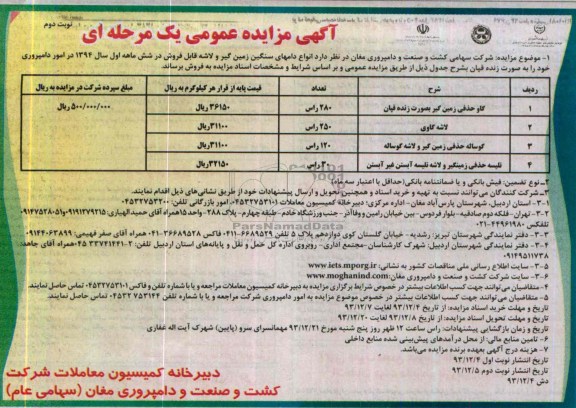 نوبت دوم
آگهی مزایده عمومی یک مرحله ای
۱- موضوع مزایده: شرکت سهامی کشت و صنعت و دامپروری مغان در نظر دارد انواع دامهای سنگین زمین گیر و لاشه قابل فروش در شش ماهه اول سال ۱۳۹۴ در امور دامپروری
خود را به صورت زنده قپان بشرح جدول ذیل از طریق مزایده عمومی و بر اساس شرایط و مشخصات اسناد مزایده به فروش برساند.
ردیف شرح تعداد قیمت پایه از قرار هر کیلوگرم به ریال مبلغ سپرده شرکت در مزایده به ریال
۱ گاو حذفی زمین گیر بصورت زنده قپان ۲۸۰ راس ۳۶۱۵۰ ریال ۵۰۰/۰۰۰/۰۰۰ ریال
۲ لاشه گاوی ۲۵۰ راس ۳۱۱۰۰ ریال
۳ گوساله حذفی زمین گیر و لاشه گوساله ۱۲۰ راس ۳۱۱۰۰ ریال
۴ تلیسه حذفی زمینگیر و لاشه تلیسه آبستن غیر آبستن راس ۳۲۱۵۰ ریال
ParsNamadData
۲- نوع تضمین: فیش بانکی و یا ضمانتنامه بانکی (حداقل با اعتبار سه ماه)
۳- شرکت کنندگان می‌توانند نسبت به تهیه و خرید اسناد و همچنین تحویل و ارسال پیشنهادات خود از طریق نشانی‌های ذیل اقدام نمایند.
۳-۱- استان اردبیل، شهرستان پارس آباد مغان- اداره مرکزی: دبیرخانه کمیسیون معاملات (۰۴۵۳۲۷۵۳۱۰۱)، امور بازرگانی تلفن: ۰۴۵۳۲۷۵۳۲۰۰
۳-۲- تهران- فلکه دوم صادقیه- بلوار فردوس- بین خیابان رامین و وفاآذر- جنب ورزشگاه خادم- طبقه چهارم- پلاک ۲۸۸- واحد ۱۵ همراه آقای حمید الهیاری ۰۹۱۹۱۷۹۲۱۵ و ۰۹۱۴۷۵۲۸۵۱۰
تلفکس ۴۴۹۶۱۹۸۰-۰۲۱
۳-۳- دفتر نمایندگی شهرستان تبریز: رشدیه- خیابان گلستان کوی دوازدهم پلاک ۵ تلفن ۶۶۸۹۵۲۹-۰۴۱۱ فاکس ۳۶۶۸۹۵۲۸-۰۴۱ همراه آقای صفر فهیمی: ۰۹۱۴۴۰۶۳۸۹۹
۳-۴- دفتر نمایندگی شهرستان اردبیل: شهرک کارشناسان- مجتمع اداری- روبروی اداره کل حمل و نقل و پایانه‌های استان اردبیل تلفن: ۳۳۷۴۱۴۴۱-۰۴۵ همراه آقای جاهد:
۰۹۱۴۹۵۱۱۷۳۸
۳-۵- سایت اطلاع رسانی ملی مناقصات کشور به نشانی: www.iets.mporg.ir
۳-۶- سایت شرکت کشت و صنعت و دامپروری مغان: www.moghanind.com
۴- متقاضیان می‌توانند جهت کسب اطلاعات بیشتر در خصوص شرایط برگزاری مزایده به دبیرخانه کمیسیون معاملات مراجعه و یا با شماره تلفن و فاکس ۰۴۵۳۲۷۵۳۱۰۱ تماس حاصل نمایند.
۵- متقاضیان می توانند جهت کسب اطلاعات بیشتر در خصوص موضوع مزایده به امور دامپروری شرکت مراجعه و یا با شماره تلفن ۳۲۷۵۳۱۴۴ ۰۴۵ تماس، حاصل نمایند.
تاریخ و مهلت خرید اسناد مزایده: از تاریخ ۹۳/۱۲/۴ لغایت ۹۳/۱۲/۷
تاریخ و مهلت تحویل اسناد مزایده: از تاریخ ۹۳/۱۲/۸ لغایت ۹۳/۱۲/۲۰
تاریخ و زمان بازگشایی پیشنهادات: راس ساعت ۱۲ ظهر روز پنج شنبه مورخ ۹۳/۱۲/۲۱ مهمانسرای سرو (پایین) شهرک آیت اله غفاری
۶- تامین منابع مالی: از محل درآمدهای پیش‌بینی شده منابع داخلی
۸- هزینه درج آگهی بعهده برنده مزایده می‌باشد.
تاریخ انتشار نوبت اول ۹۳/۱۲/۴
تاریخ انتشار نوبت دوم ۹۳/۱۲/۵
دش ۹۳/۱۲/۴
دبیرخانه کمیسیون معاملات شرکت
کشت و صنعت و دامپروری مغان (سهامی عام)